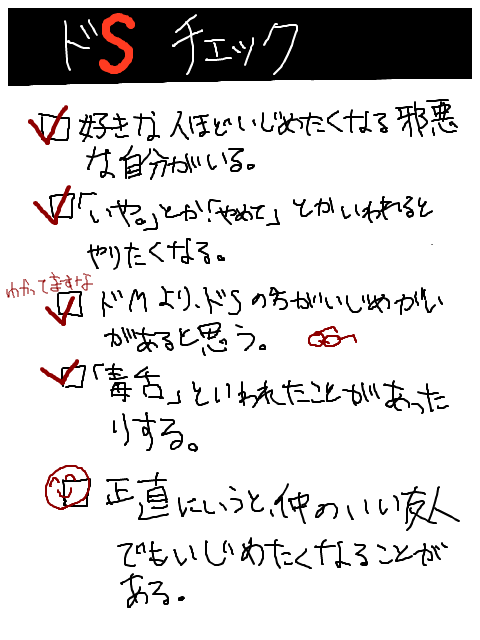 ドS チェック
好きな人ほどいじめたくなる邪悪
な自分がいる。
「いや。」とか「やめて」とかいわれると
やりたくなる。
わかってますな
ドMより、ドSの方がいじめがい
があると思う。
「毒舌」といわれたことがあった
りする。
正直にいうと、仲のいい友人
でもいじめたくなることが
ある。